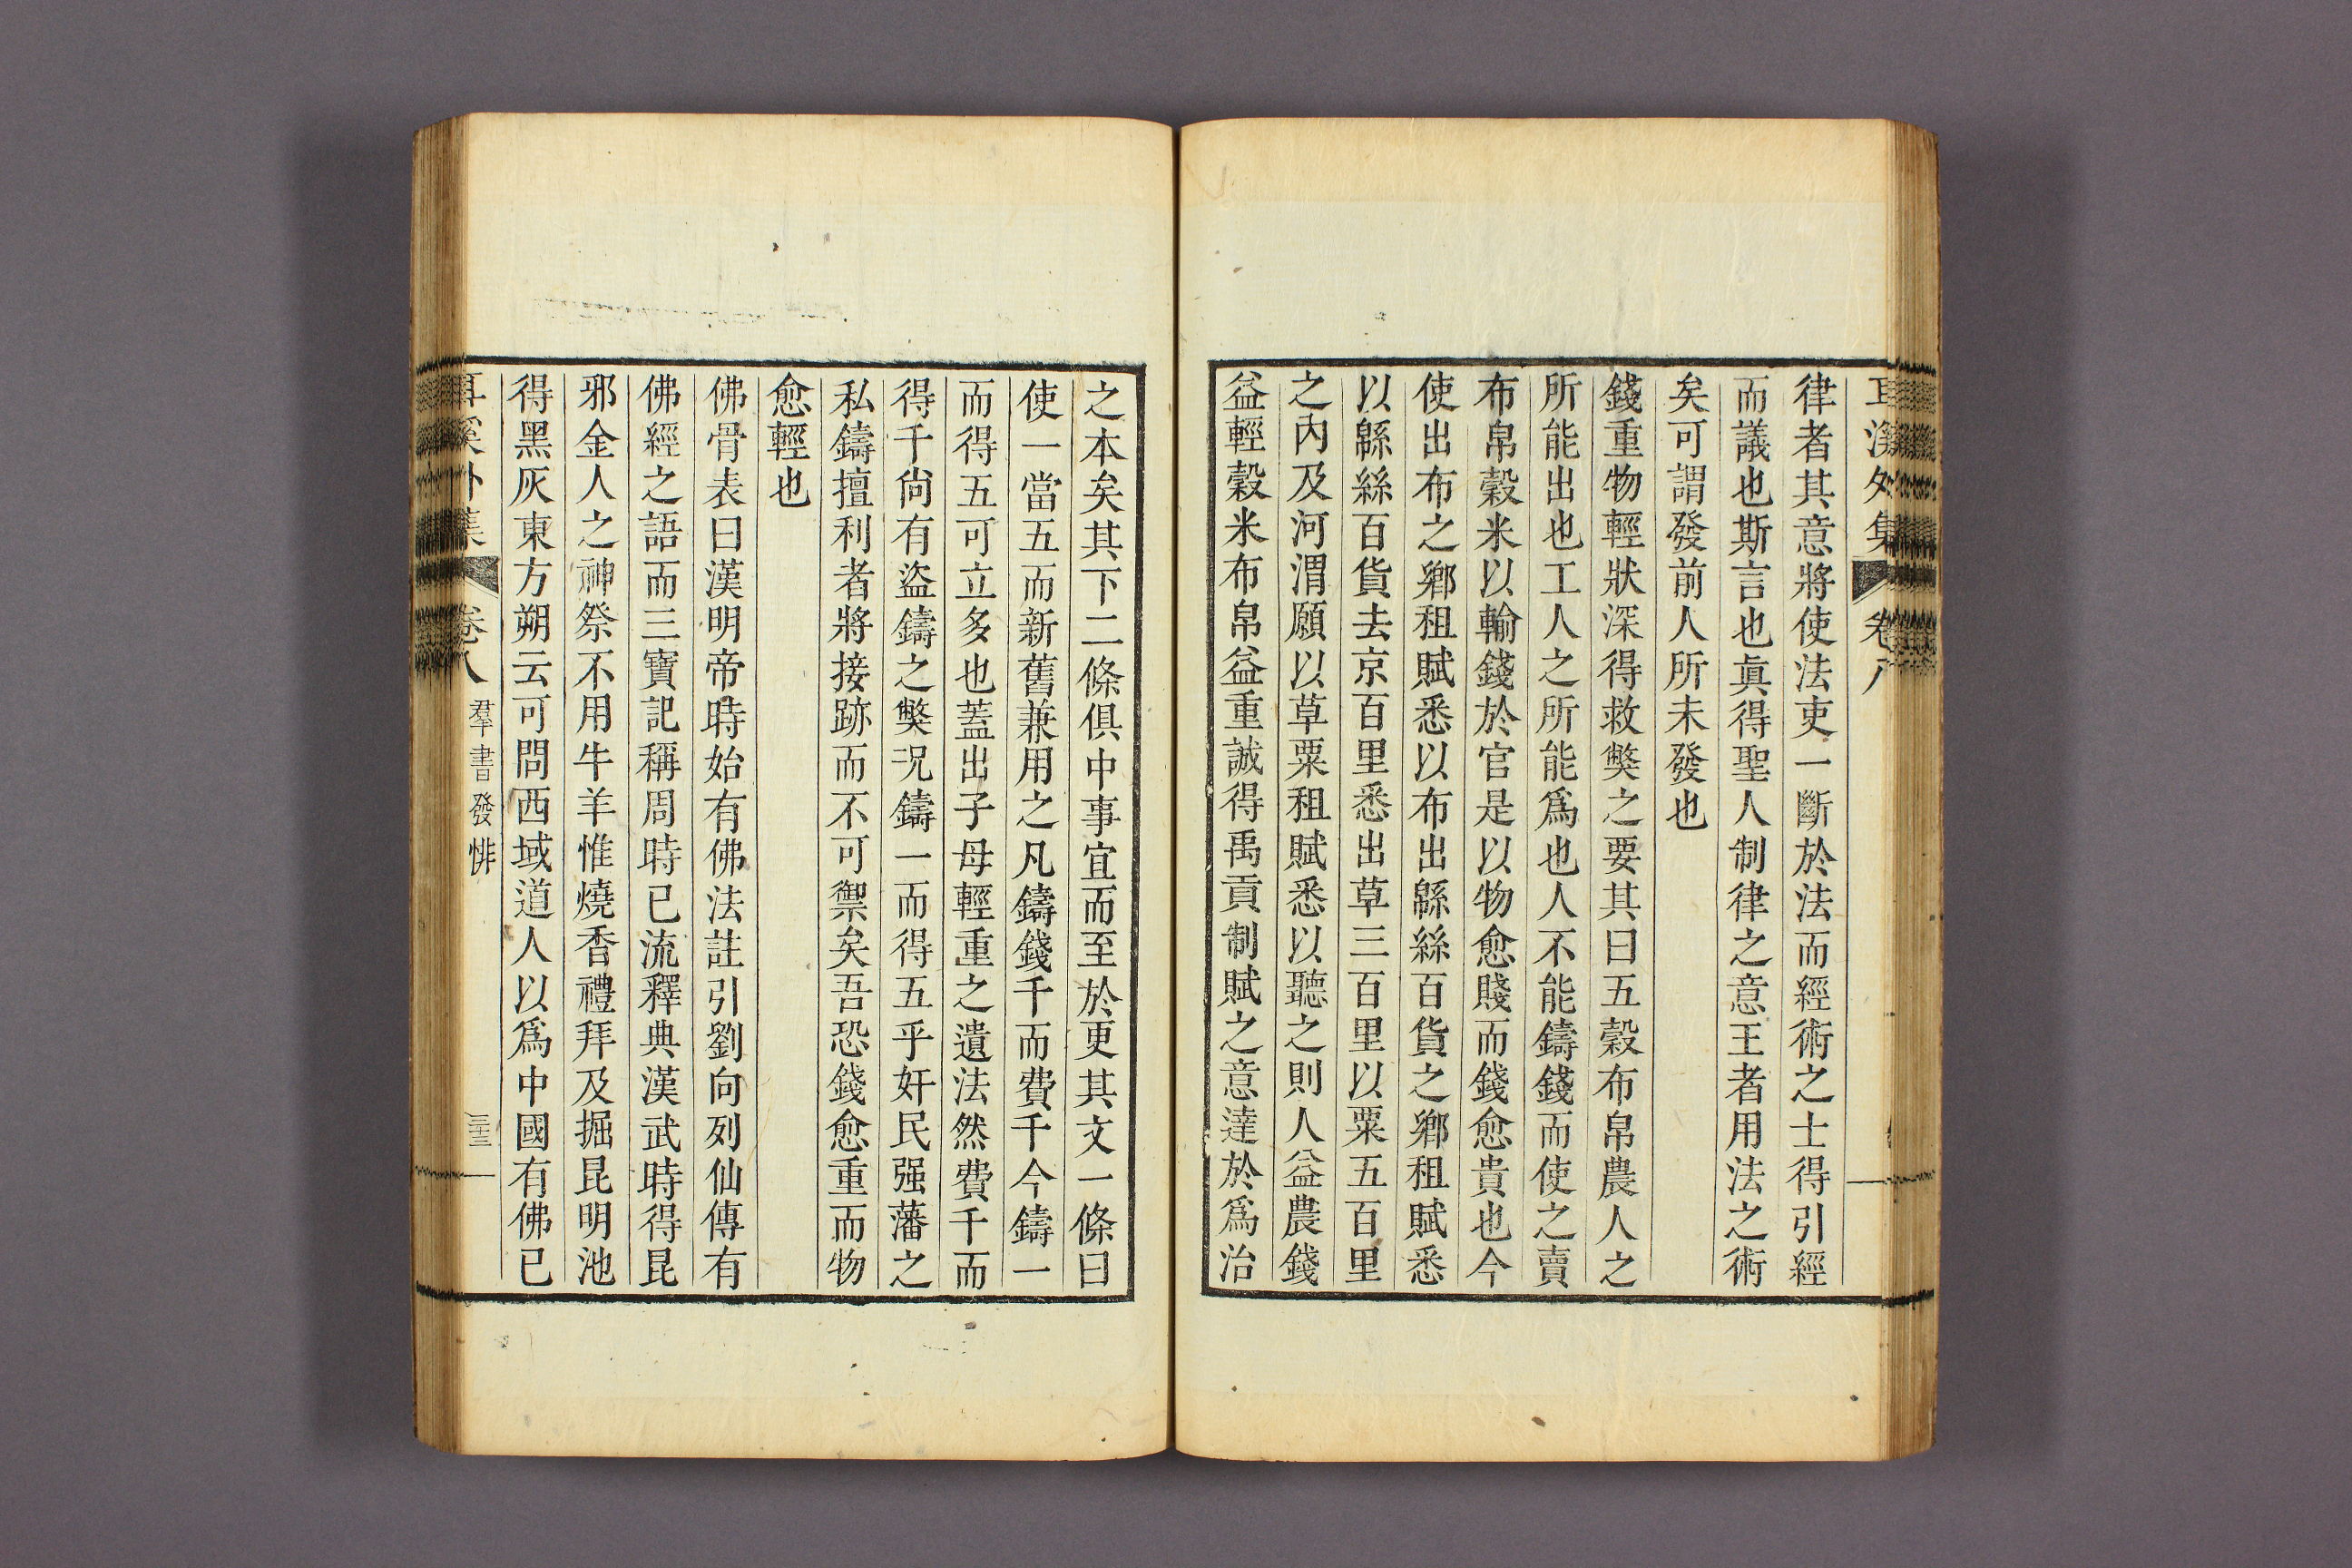 耳溪外集 卷八
律者其意將使法吏一斷於法而經術之士得引經
而議也斯言也眞得聖人制律之意王者用法之術
矣可謂發前人所未發也
錢重物輕狀深得救獘之要其曰五穀布帛農人之
所能出也工人之所能爲也人不能鑄錢而使之賣
布帛穀米以輸錢於官是以物愈賤而錢愈貴也今
使出布之鄕租賦悉以布出緜絲百貨之鄕租賦悉
以緜絲百貨去京百里悉出草三百里以粟五百里
之內及河渭願以草粟租賦悉以聽之則人益農錢
益輕穀米布帛益重誠得禹貢制賦之意達於爲治
之本矣其下二條俱中事宜而至於更其文一條曰
使一當五而新舊兼用之凡鑄錢千而費千今鑄一
而得五可立多也蓋出子母輕重之遺法然費千而
得千尙有盜鑄之獘况鑄一而得五乎奸民强藩之
私鑄擅利者將接跡而不可禦矣吾恐錢愈重而物
愈輕也
佛骨表曰漢明帝時始有佛法註引劉向列仙傳有
佛經之語而三寶記稱周時已流釋典漢武時得昆
邪金人之神祭不用牛羊惟燒香禮拜及掘昆明池
得黑灰東方朔云可問西域道人以爲中國有佛已
耳溪外集 卷八 羣書發悱 三十三